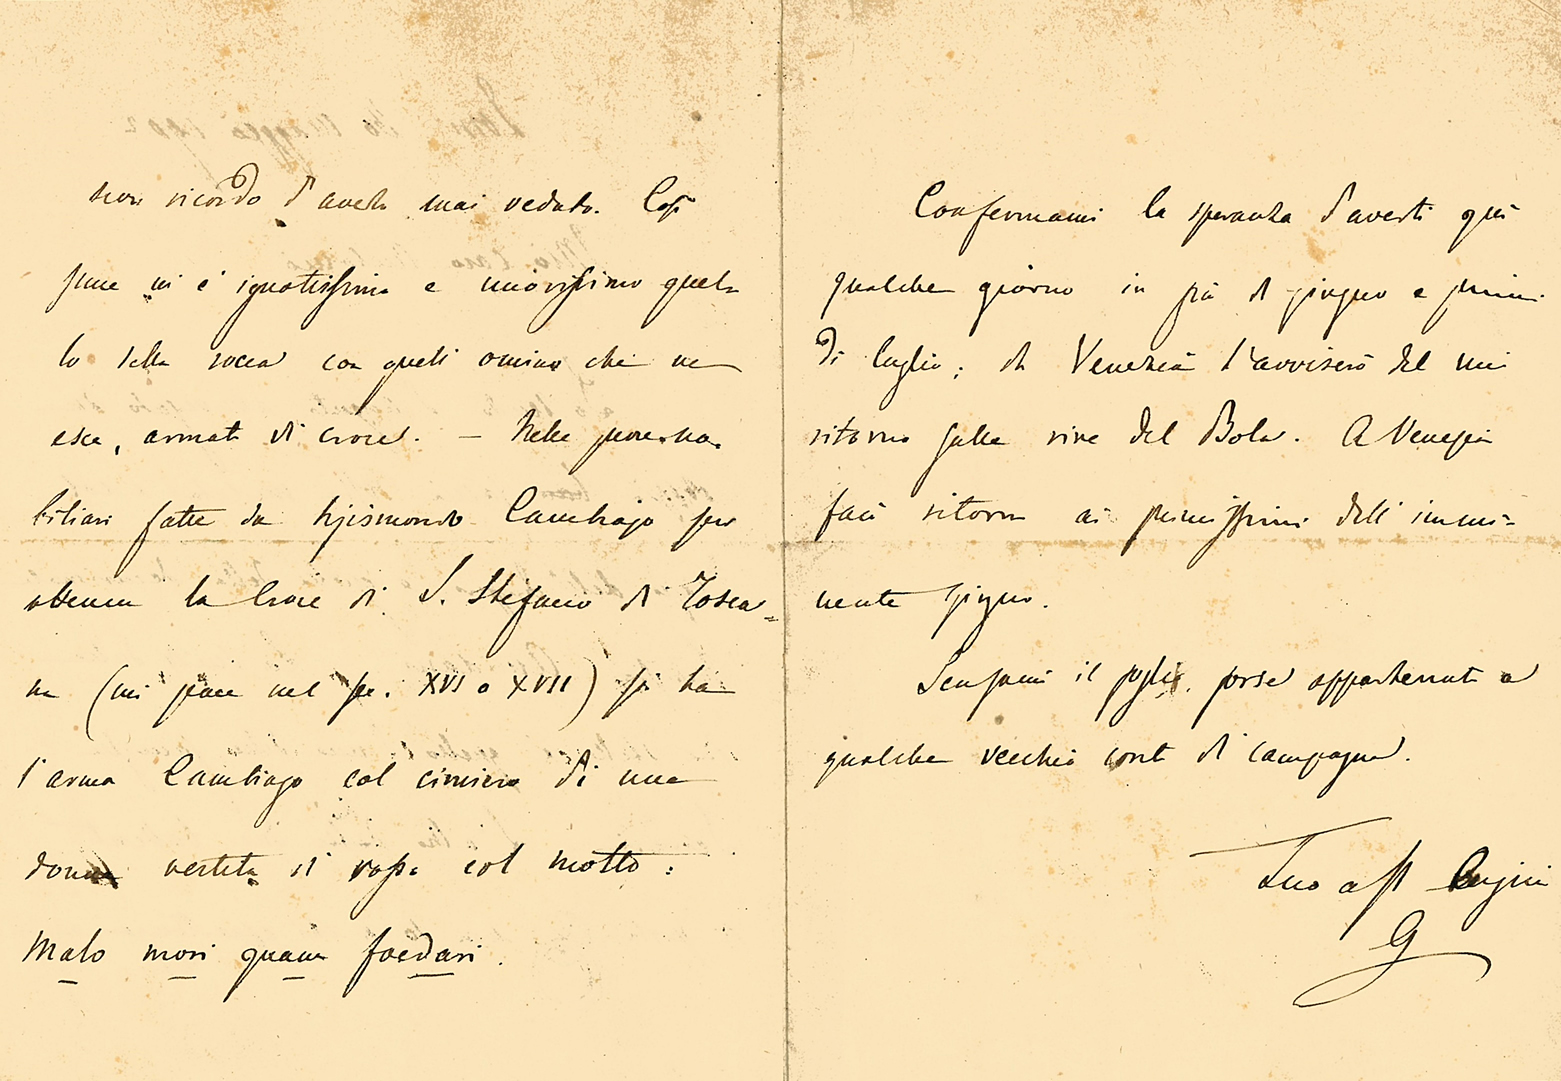 non ricordo d'averlo mai veduto. Così
pure mi è ignotissimo e nuovissimo quel-
lo della rocca con quell omino che ne
esce, armato di croce. — Nelle prove no-
biliari fatte da Sigismondo Cambiago per
ottenere la Croce di S. Stefano di Tosca=
na (mi pare nel sec. XVI o XVII) si ha
l'arma Cambiago col cimiero di una
donna vestita di rosso col motto:
Malo mori quam foedari.
Confermami la speranza d'averti quì
qualche giorno in fin di giugno e primi
di luglio; da Venezia t'avviserò del mio
ritorno sulle rive del Bola. A Venezia
farò ritorno ai primissimi dell' immi=
nente giugno.
Scusami il foglio, forse appartenuto a
qualche vecchio conte di campagna.
Tuo aff Cugino
G